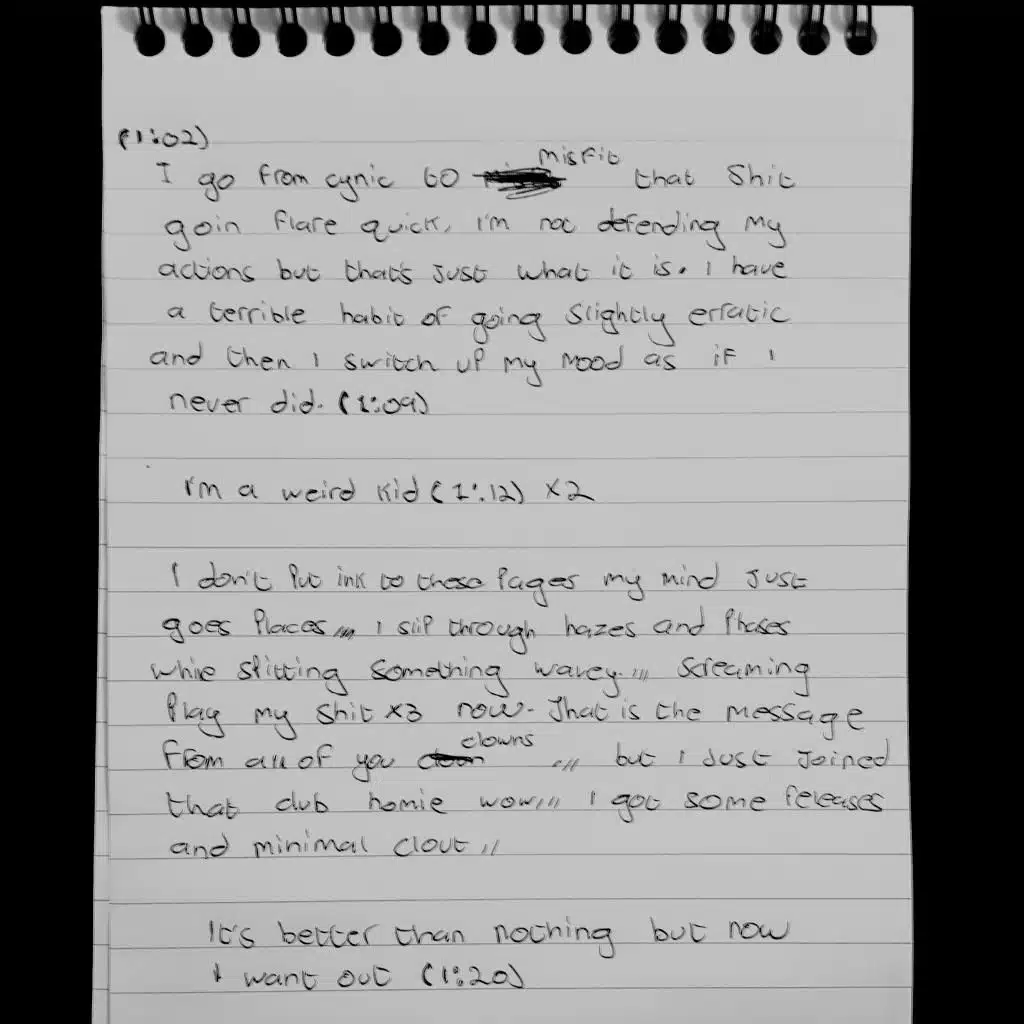 (1:02)
I go from cynic to misfit that shit
goin flare quick, I'm not defending my
actions but that's just what it is. I have
a terrible habit of going slightly erratic
and then I switch up my mood as if I
never did. (1:09)
I'm a weird kid (1:12) x2
I don't put ink to these pages my mind just
goes places,,, I slip through hazes and phases
while spitting something wavey.,,, screaming
play my shit x3 now. That is the message
from all of you clowns ,,, but I just joined
that club homie wow,,, I got some releases
and minimal clout ,,
It's better than nothing but now
I want out (1:20)